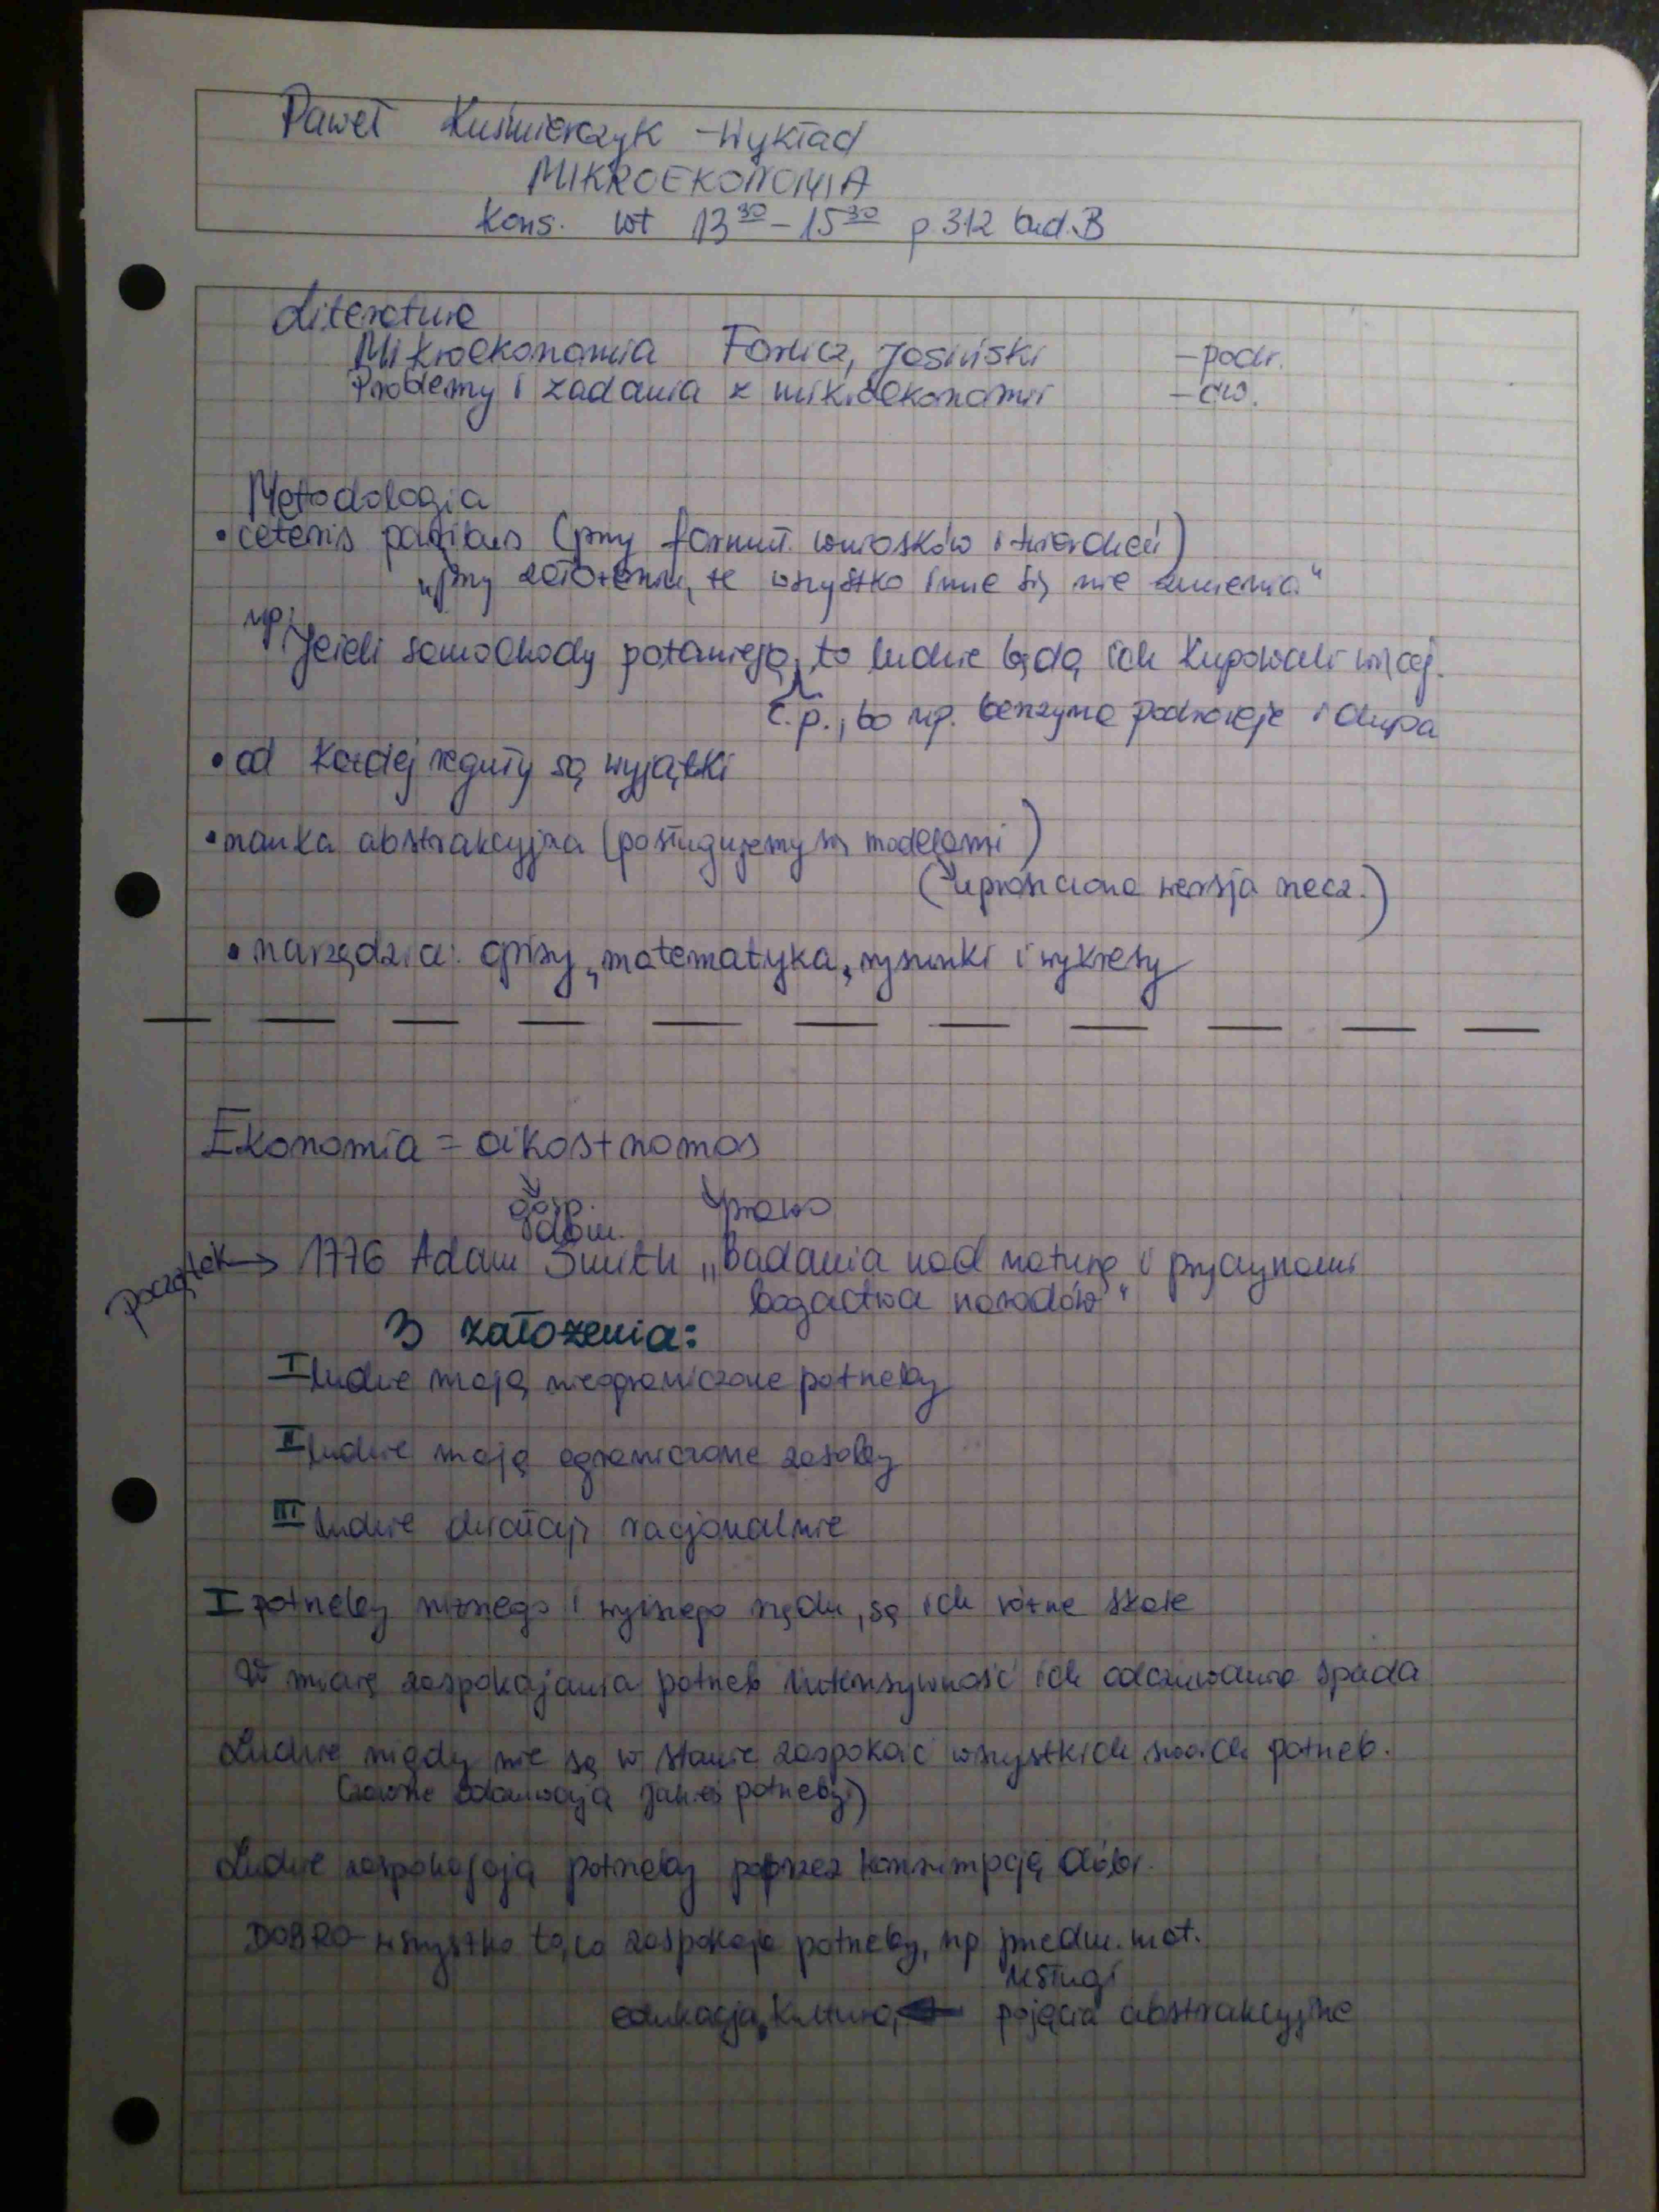 Paweł Kuśmierczyk - Wykład
MIKROEKONOMIA
Kons. wt 13³⁰ - 15³⁰ p 312 bud. B
Literatura
Mikroekonomia Forlicz, Jasiński - podr.
Problemy i zadania z mikroekonomii - ćw.
Metodologia
• ceteris paribus (przy formuł. wniosków i twierdzeń)
„przy założeniu, że wszystko inne się nie zmienia"
np. Jeżeli samochody potanieją, to ludzie będą ich kupowali więcej.
c.p., bo np. benzyna podrożeje i dupa
• od każdej reguły są wyjątki
• nauka abstrakcyjna (posługujemy się modelami)
(uproszczona wersja rzecz.)
• narzędzia: opisy, matematyka, rysunki i wykresy
Ekonomia = oikos + nomos
gosp. prawo
dom.
początek → 1776 Adam Smith „Badania nad naturą i przyczynami
bogactwa narodów"
3 założenia:
I ludzie mają nieograniczone potrzeby
II ludzie mają ograniczone zasoby
III ludzie działają racjonalnie
I potrzeby niższego i wyższego rzędu, są ich różne skale
W miarę zaspokajania potrzeb intensywność ich odczuwania spada
Ludzie nigdy nie są w stanie zaspokoić wszystkich swoich potrzeb.
(zawsze odczuwają jakieś potrzeby)
Ludzie zaspokajają potrzeby poprzez konsumpcję dóbr.
DOBRO - wszystko to, co zaspokaja potrzeby, np przedm. mat.
usługi
edukacja, kultura, ← pojęcia abstrakcyjne